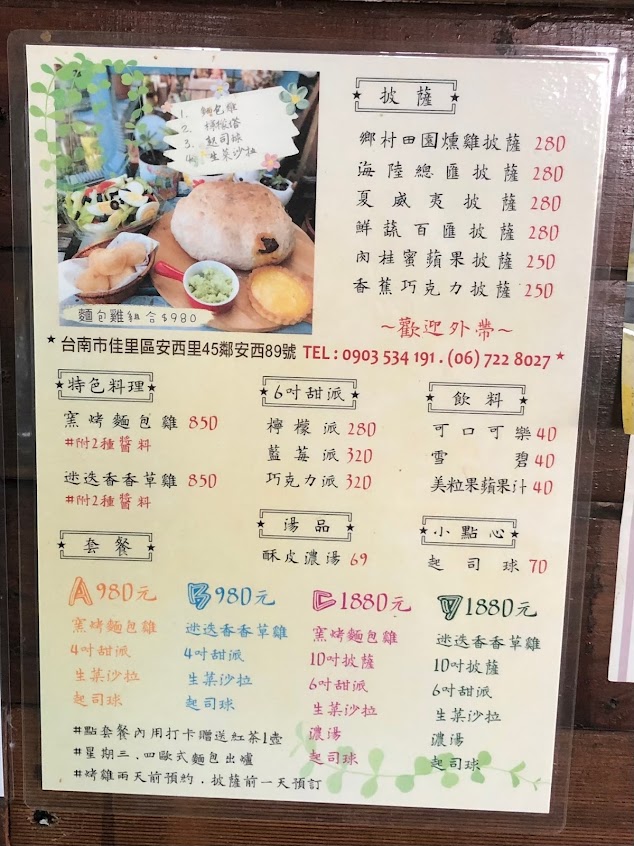 1. 麵包雞
2. 檸檬塔
3. 起司球
4. 生菜沙拉
麵包雞組合$980
披薩
鄉村田園燻雞披薩 280
海陸總匯披薩 280
夏威夷披薩 280
鮮蔬百匯披薩 280
肉桂蜜蘋果披薩 250
香蕉巧克力披薩 250
~歡迎外帶~
台南市佳里區安西里45鄰安西89號 TEL : 0903 534 191 . (06) 722 8027
特色料理
窯烤麵包雞 850
#附2種醬料
迷迭香香草雞 850
#附2種醬料
6吋甜派
檸檬派 280
藍莓派 320
巧克力派 320
飲料
可口可樂 40
雪碧 40
美粒果蘋果汁 40
湯品
酥皮濃湯 69
小點心
起司球 70
套餐
A 980元
窯烤麵包雞
4吋甜派
生菜沙拉
起司球
B 980元
迷迭香香草雞
4吋甜派
生菜沙拉
起司球
C 1880元
窯烤麵包雞
10吋披薩
6吋甜派
生菜沙拉
濃湯
起司球
D 1880元
迷迭香香草雞
10吋披薩
6吋甜派
生菜沙拉
濃湯
起司球
#點套餐內用打卡贈送紅茶1壺
#星期三.四歐式麵包出爐
#烤雞兩天前預約.披薩前一天預訂